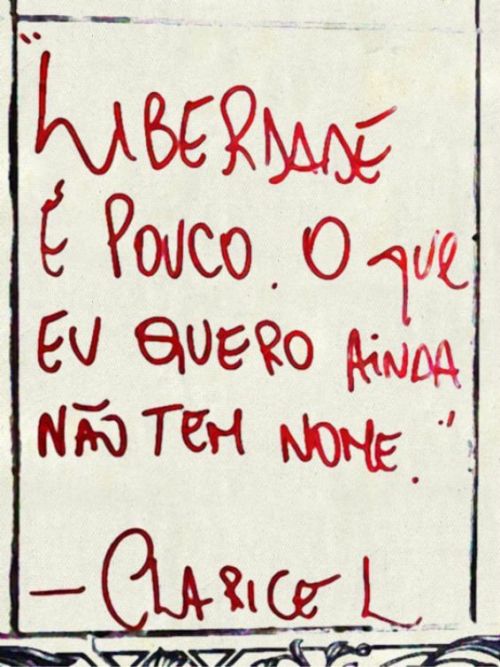 "LIBERDADE
É POUCO. O que
EU QUERO AINDA
NÃO TEM NOME."
— CLARICE L